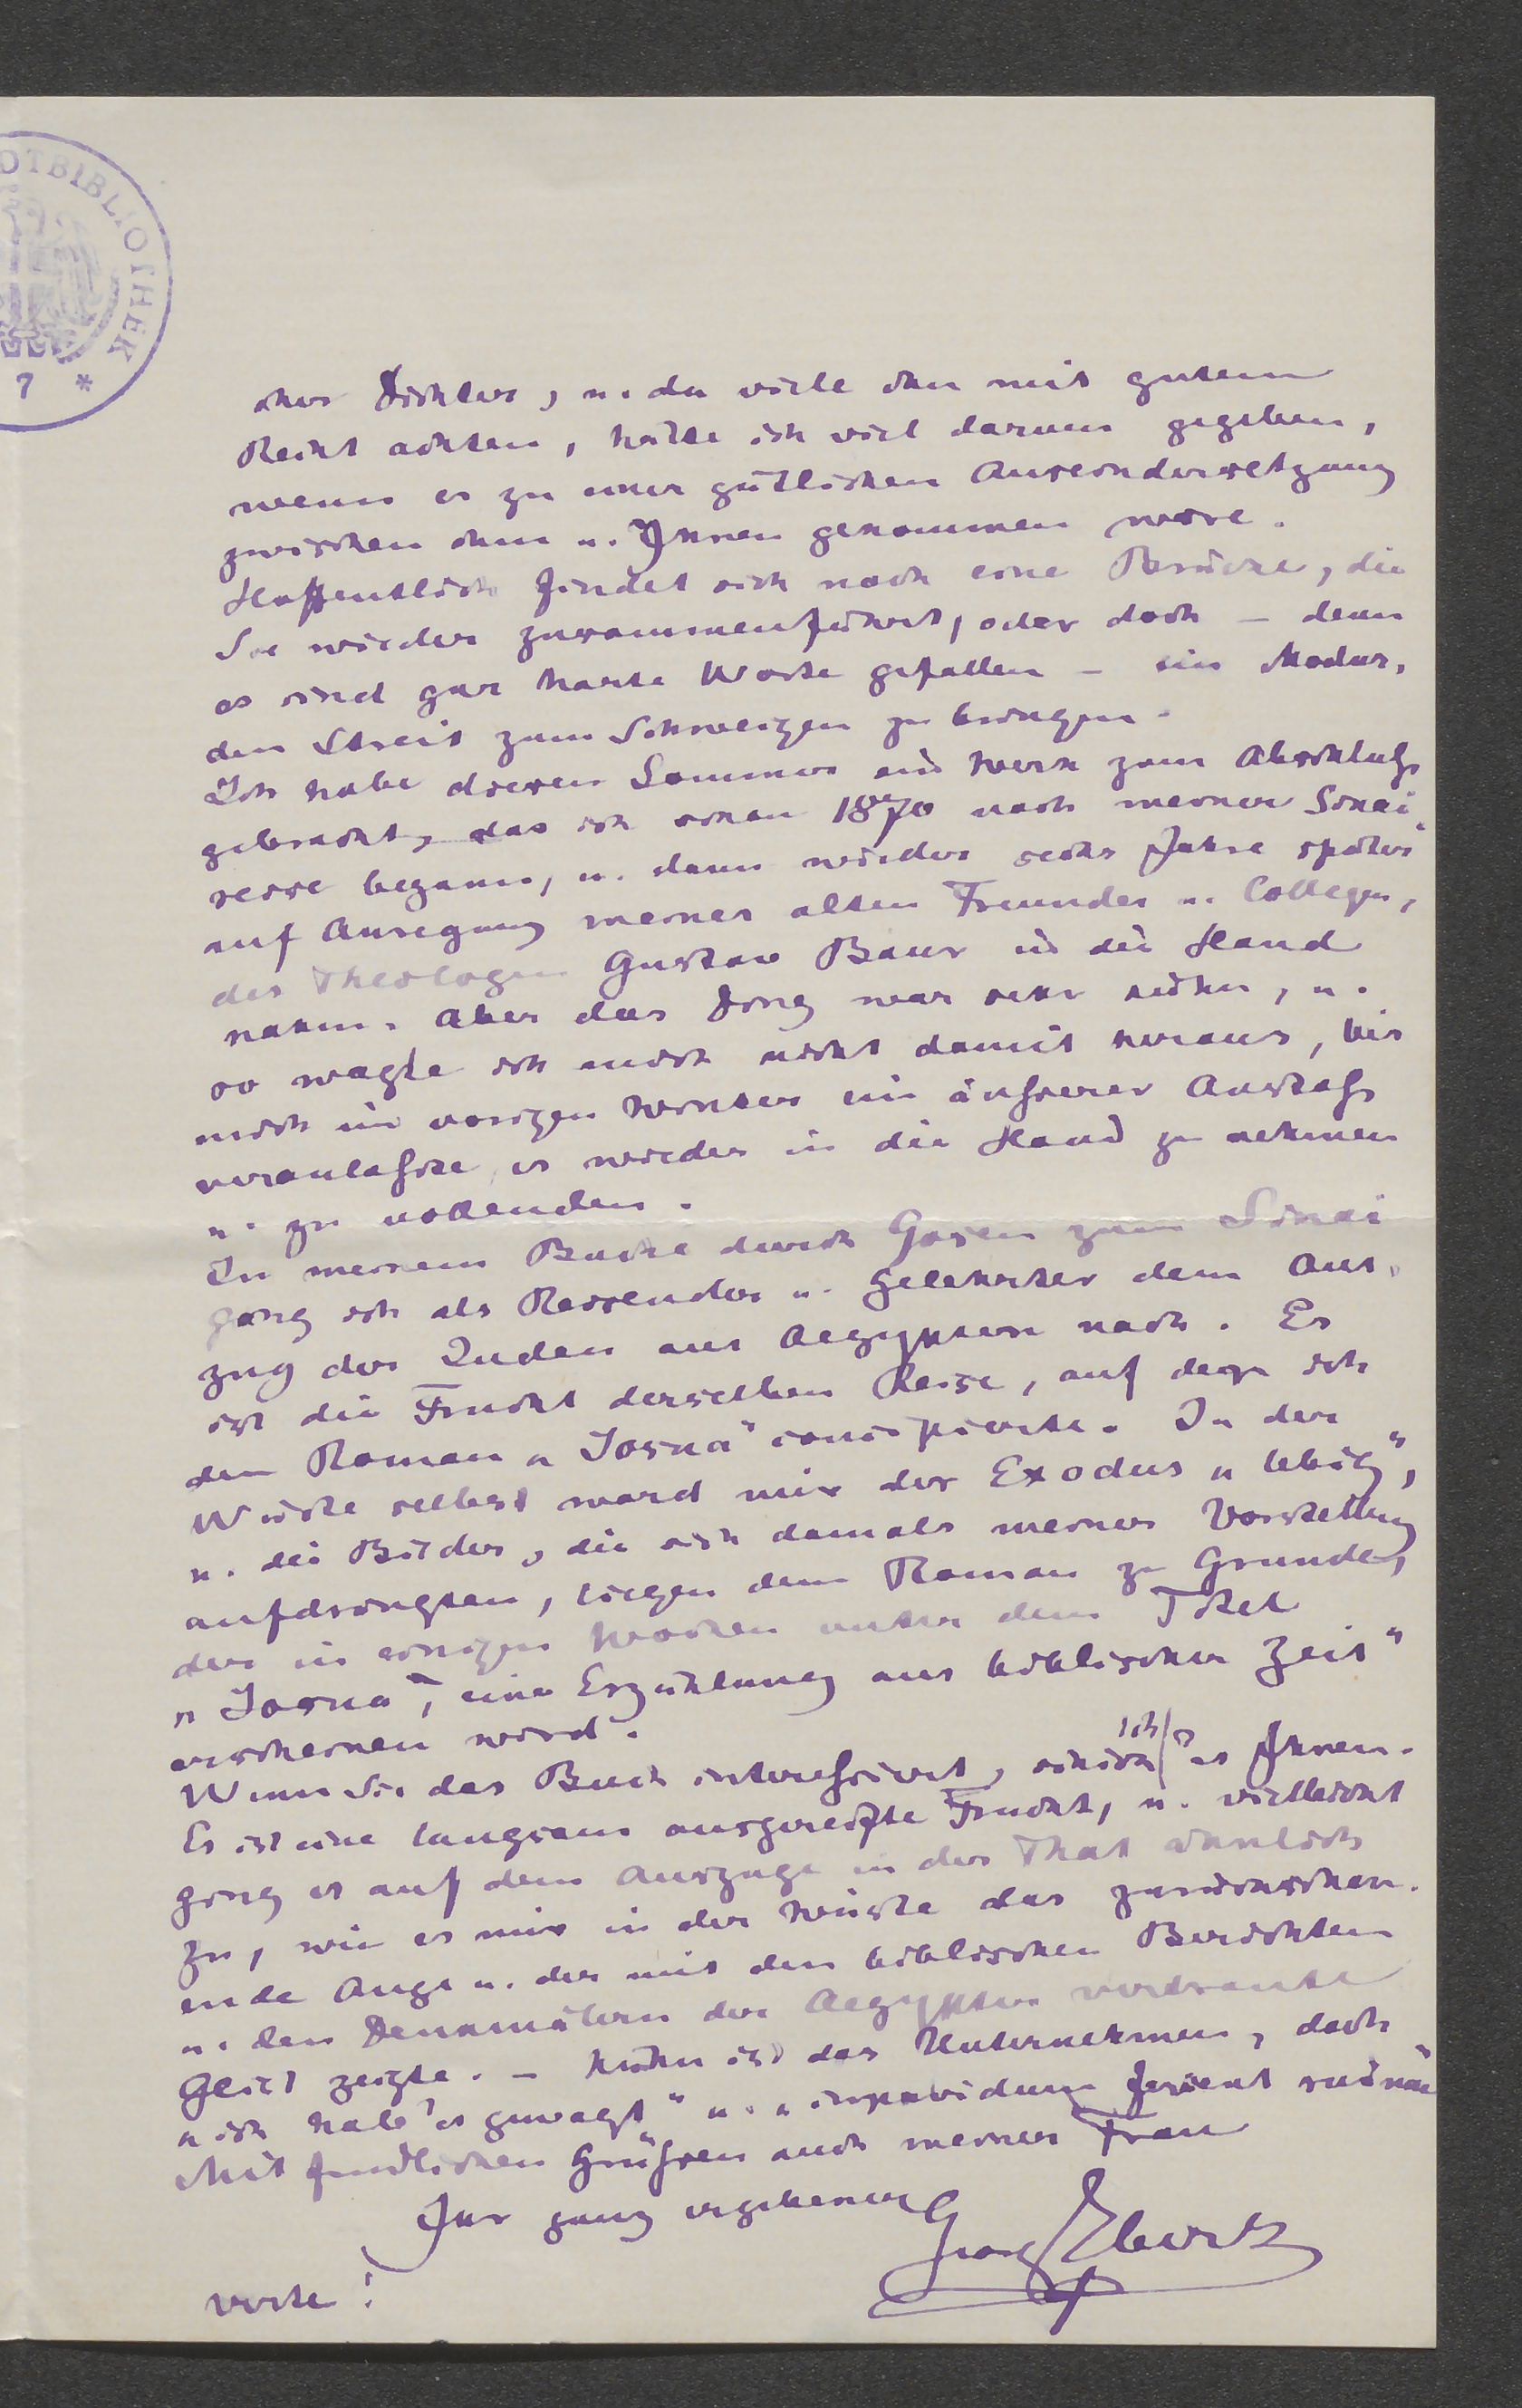 DTBIBLIOTHEK
7 *
cher Dichter, u. da viele ihn mit gutem
Recht achten, hätte ich viel darum gegeben,
wenn es zu einer gütlichen Auseindersetzung
zwischen ihm u. Ihnen gekommen wäre.
Hoffentlich findet sich noch eine Brücke, die
Sie wieder zusammenführt, oder doch - denn
es sind gar harte Worte gefallen - ein Modus,
den Streit zum Schweigen zu bringen.
Ich habe diesen Sommer ein Werk zum Abschluß
gebracht, das ich schon 1870 nach meiner Sinai-
reise begann, u. dann wieder sechs Jahre später
auf Anregung meines alten Freundes u. Collegen,
des Theologen Gustav Baur in die Hand
nahm. Aber das Ding war sehr kühn, u.
so wagte ich mich nicht damit heraus, bis
mich im vorigen Winter ein äußerer Anstoß
veranlaßte es wieder in die Hand zu nehmen
u. zu vollenden.
In meinem Buche durch Gosen zum Sinai
ging ich als Reisender u. Gelehrter dem Aus-
zug der Juden aus Aegypten nach. Es
ist die Frucht derselben Reise, auf der ich
den Roman „Josua" concipierte. In der
Wüste selbst ward mir der Exodus „lebig",
u. die Bilder, die sich damals meiner Vorstellung
aufdrängten, liegen dem Roman zu Grunde,
der in einigen Wochen unter dem Titel
„Josua", eine Erzählung aus biblischer Zeit"
erscheinen wird.
Wenn Sie das Buch interessirt, schick ich's Ihnen.
Es ist eine langsam ausgereifte Frucht, u. vielleicht
ging es auf dem Auszuge in der That ähnlich
zu, wie es mir in der Wüste das zurückschau-
ende Auge u. der mit den biblischen Berichten
u. den Denkmälern der Aegypter vertraute
Geist zeigte. - Kühn ist das Unternehmen, doch
„ich hab's gewagt" u. „impavidum ferient ruinae
Mit freundlichen Grüßen auch meiner Frau
Ihr ganz ergebener
Georg Ebers
verte!